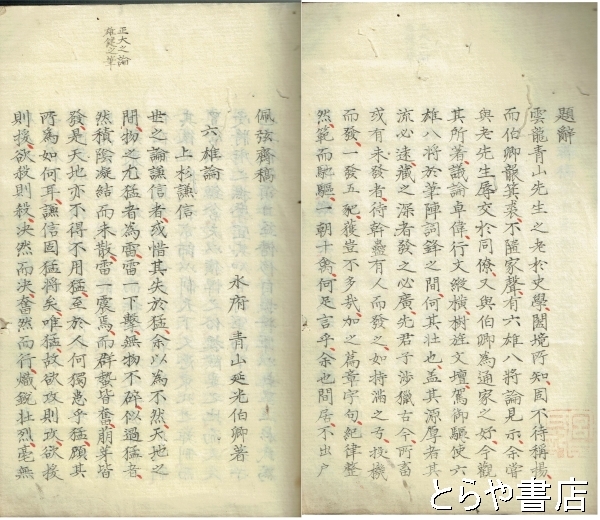 題辭
雲龍青山先生之老於史學闔境所知固不待稱揚
而伯卿襲箕裘不隨家聲有六雄八將論見示余嘗
與老先生辱交於同僚又與伯卿為通家之好今觀
其所著議論卓偉行文縱橫樹旌文壇駕御驅使六
雄八將於筆陣詞鋒之間何其壯也盖其源厚者其
流必遠藏之深者發之必廣先君子涉獵古今所畜
或有未發者待幹蠱有人而發之如持滿之弓投機
而發一發五豝獲豈不多哉加之篇章字句紀律整
然範而馳驅一朝十禽何足言乎余也間居不出戶
正大之論
雄健之筆
佩弦齊稿
六雄論
水府 青山延光伯卿著
上杉謙信
世之論謙信者或惜其失於猛余以為不然天地之
間物之尤猛者為雷雷一下擊無物不碎似過猛音
然積陰凝結而未散雷一震焉而群蟄皆奮崩芽皆
發是天地亦不得不用猛至於人何獨患乎猛顧其
所為如何耳謙信固猛將矣唯猛故欲攻則攻欲援
則援欲殺則殺決然而決奮然而行熾銳壯烈毫無
とらや書店